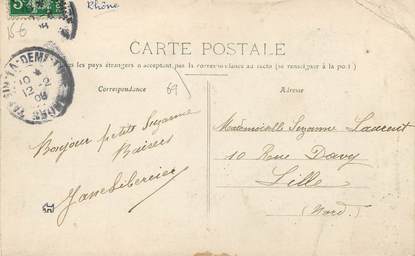 Rhône
15-6
CARTE POSTALE
les pays étrangers n'acceptent pas la correspondance au recto (se renseigner à la poste)
Correspondance
69
Adresse
Bonjour petite Suzanne
Baisers
Mademoiselle Suzanne Laurent
10 Rue Davy
Lille
(Nord.)